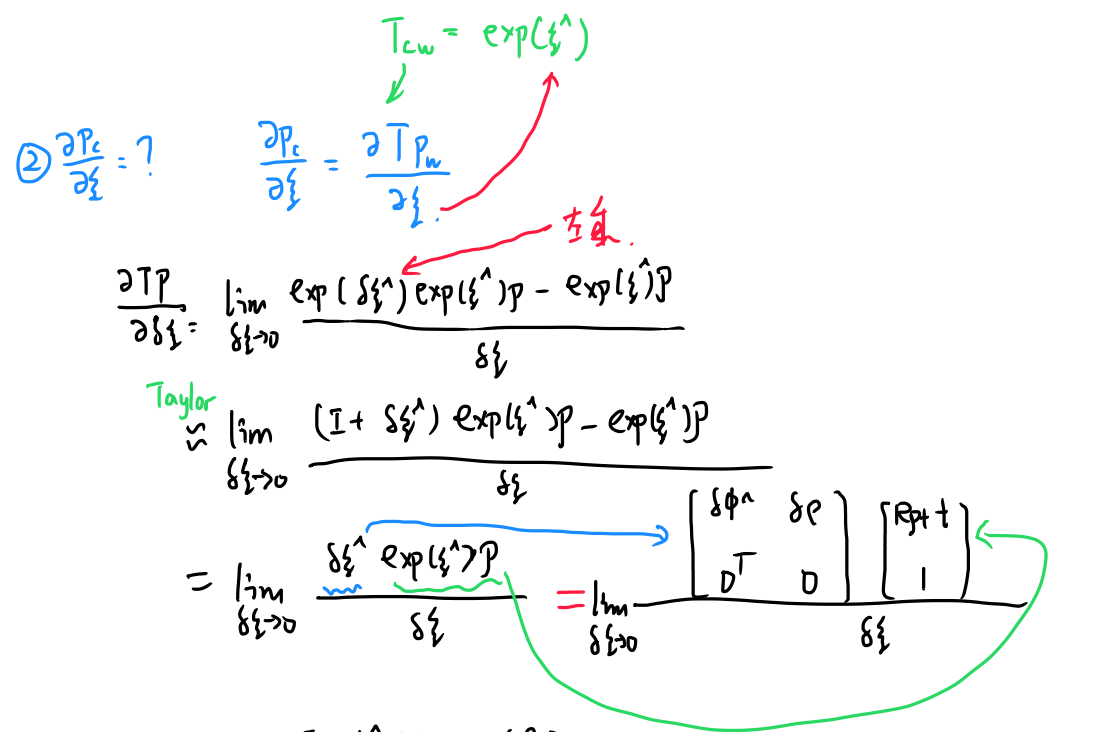 T_cw = exp(ξ^)
② ∂P_c/∂ξ = ? ∂P_c/∂ξ = ∂TP_w/∂ξ.
左乘.
∂TP/∂δξ = lim δξ→0 (exp(δξ^)exp(ξ^)P - exp(ξ^)P)/δξ
Taylor
≈ lim δξ→0 ((I + δξ^)exp(ξ^)P - exp(ξ^)P)/δξ
= lim δξ→0 (δξ^ exp(ξ^)P)/δξ = lim δξ→0 ([δφ^ δρ; 0^T 0] [Rp+t; 1])/δξ